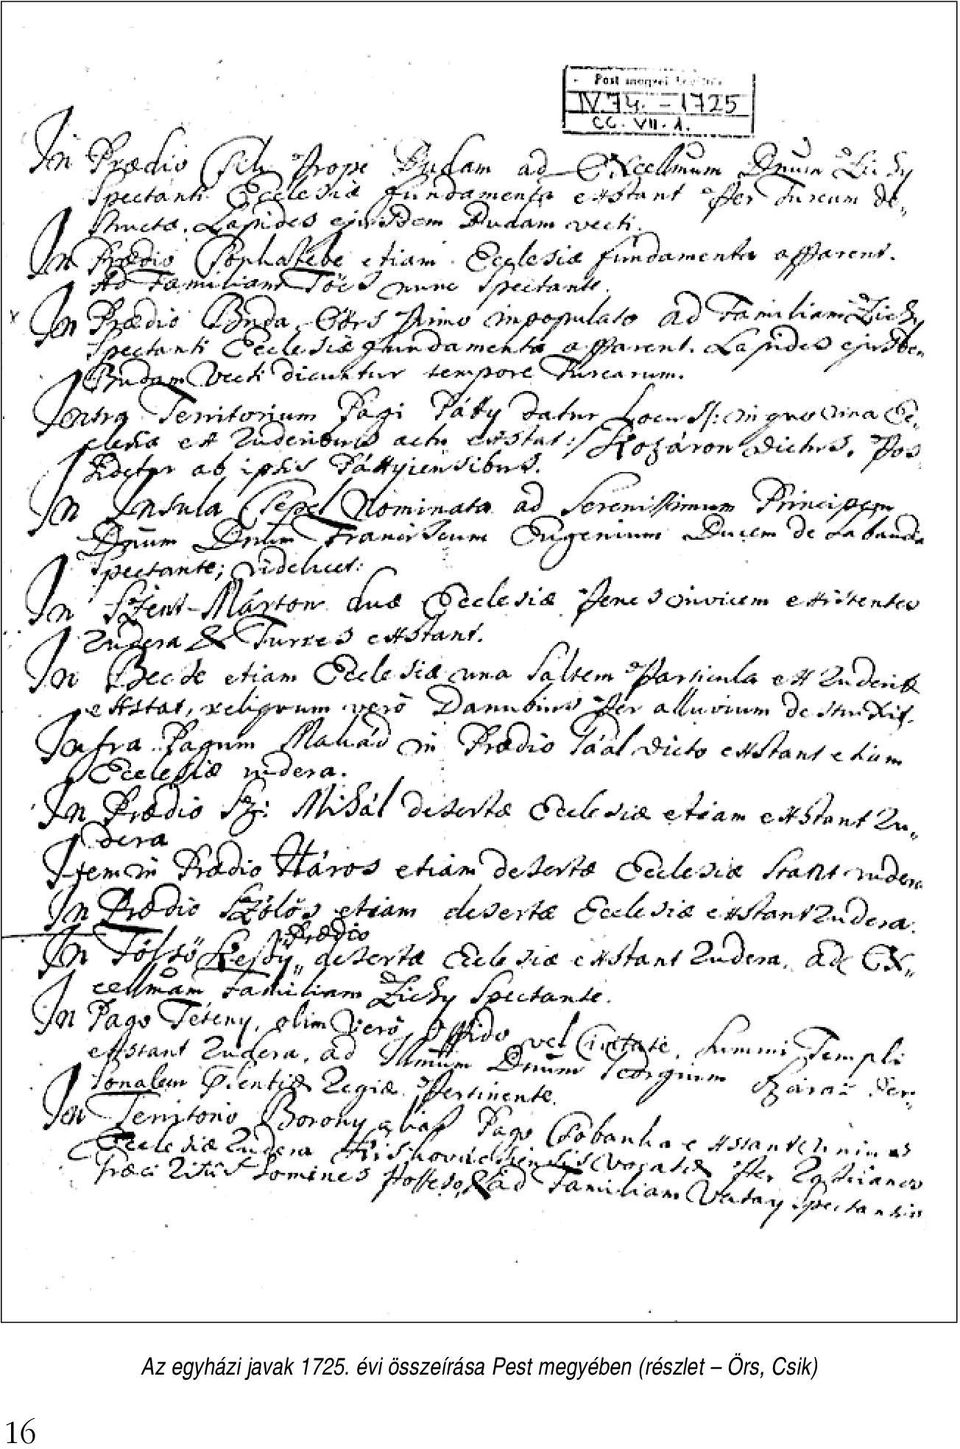 Pest megyei
IV. 74. - 1725
CC. VII. 1.
In Prædio Csik prope Budam ad Excellmum Dnum Zichy
Spectanti Ecclesiæ fundamenta exstant per Turcam de„
structa. Lapides ejusdem Budam vecti.
In Prædio etiam Ecclesiæ fundamenta apparent.
Ad Familiam nunc Spectante.
In Prædio Buda Eörs impopulato ad Familiam Zichy
Spectanti Ecclesiæ fundamenta apparent. Lapides ejusdem
Budam Vecti dicuntur tempore Turcarum.
Intra Territorium Pagi Pátty datur Locus /: in quo una Ec„
clesia ex Ruderibus actu exstat :/ Kozáron dictus. Pos„
sidetur ab ipsis Páttyiensibus.
In Insula Csepel Nominata ad Serenissimum Principem
Dnum Dnum Franciscum Eugenium Ducem de Sabaudia
Spectante; videlicet:
In Szent-Márton duæ Ecclesiæ penes invicem existentes
Rudera & Turres exstant.
In Becse etiam Ecclesiæ una saltem particula ex Ruderibus
exstat, reliquum verò Danubius per alluvium destruxit.
Infra Pagum Makád in Prædio Taál dicto exstant etiam
Ecclesiæ rudera.
In Prædio Sz: Mihál desertæ Ecclesiæ etiam exstant Ru„
dera
Item in Prædio Háros etiam desertæ Ecclesiæ stant rudera
In Prædio Szölös etiam desertæ Ecclesiæ exstant Rudera.
Prædio
In Fölsö desertæ Ecclesiæ exstant Rudera, ad Ex„
cellmam Familiam Zichy Spectante.
In Pago Tétény, olim verò Oppido vel Civitate, summi Templi
exstant Rudera, ad Illmum Dnum Georgium Szaraz Per„
sonalem Præsentiæ Regiæ pertinente.
In Territorio Borony aliàs Pago Csobanka exstant
Ecclesiæ Rudera per Rascianos
Græci Ritûs homines ad Familiam Spectantis
Az egyházi javak 1725. évi összeírása Pest megyében (részlet – Örs, Csik)
16